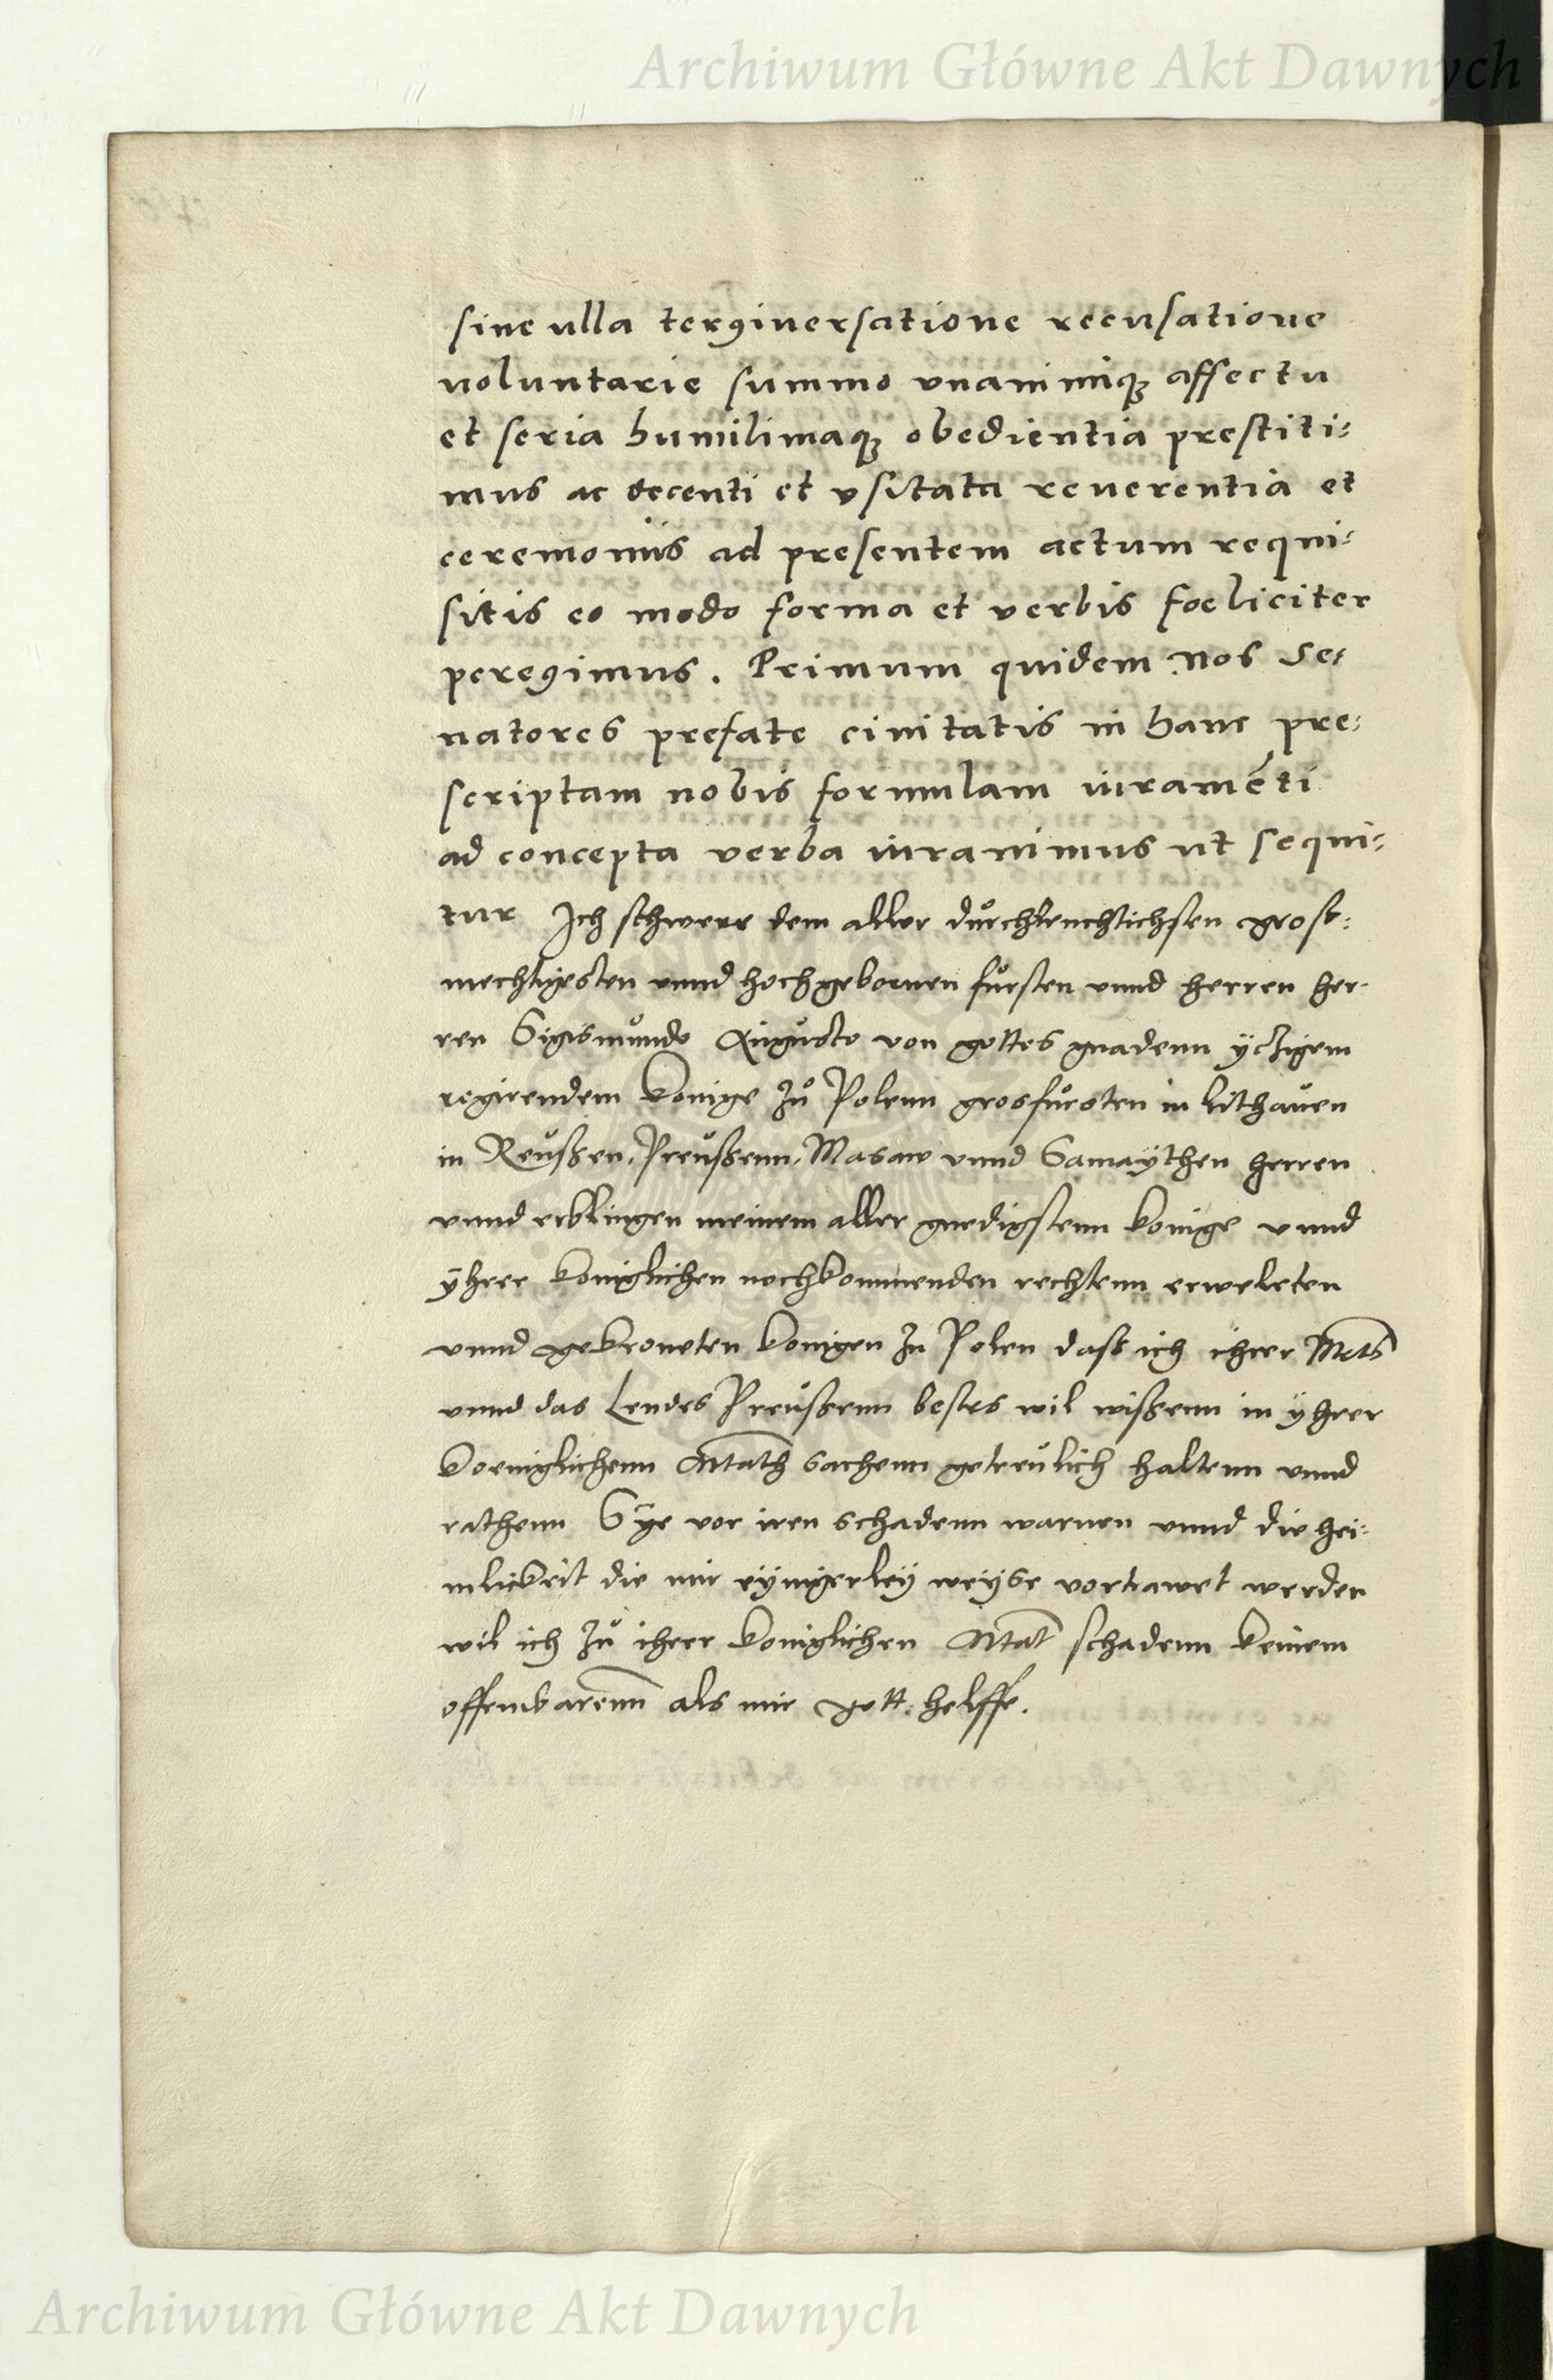 Archiwum Główne Akt Dawnych
sine ulla tergiuersatione recusatione
uoluntarie summo vnanimiq; affectu
et seria humilimaq; obedientia prestiti:
mus ac decenti et vsitata reuerentia et
ceremoniis ad presentem actum requi:
sitis eo modo forma et verbis foeliciter
peregimus. Primum quidem nos Se:
natores prefate ciuitatis in hanc pre:
scriptam nobis formulam iuramēti
ad concepta verba iurauimus ut sequi:
tur Ich schwere dem aller důrchleuchtichsten gros:
mechtigesten vnnd hochgebornen fůrsten vnnd herren her-
ren Sigismůndo Aůgůsto von gottes gnadenn ÿtzigem
regirendem Konige zů Polenn grosfůrsten in Lithaůen
in Reůßen, Preůßenn, Masaw vnnd Samaÿthen herren
vnnd erblingen meinem aller gnedigstenn konige vnnd
ÿhrer koniglichen nochkommenden rechtenn erweleten
vnnd gekroneten konigen zu Polen daß ich ihrer Mats
vnnd das Lendes Preůßenn bestes wil wißenn in ÿhrer
koeniglichenn Matth sachenn getreůlich haltenn vnnd
rathenn Sÿe vor iren schadenn warnen vnnd die hei:
mlickeit die mir eÿnigerleÿ weÿse vortrawet werden
wil ich zů ihrer koniglichen Mat schadenn keinem
offenbarenn als mir gott helffe.
Archiwum Główne Akt Dawnych